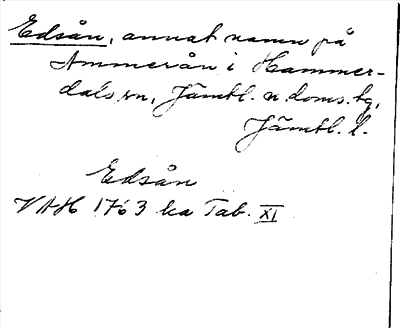 Edsån, annat namn på
Ammerån i Hammer-
dals sn, Jämtl. n. doms. tg,
Jämtl. l.
Edsån
VAH 1763 ka Tab. XI